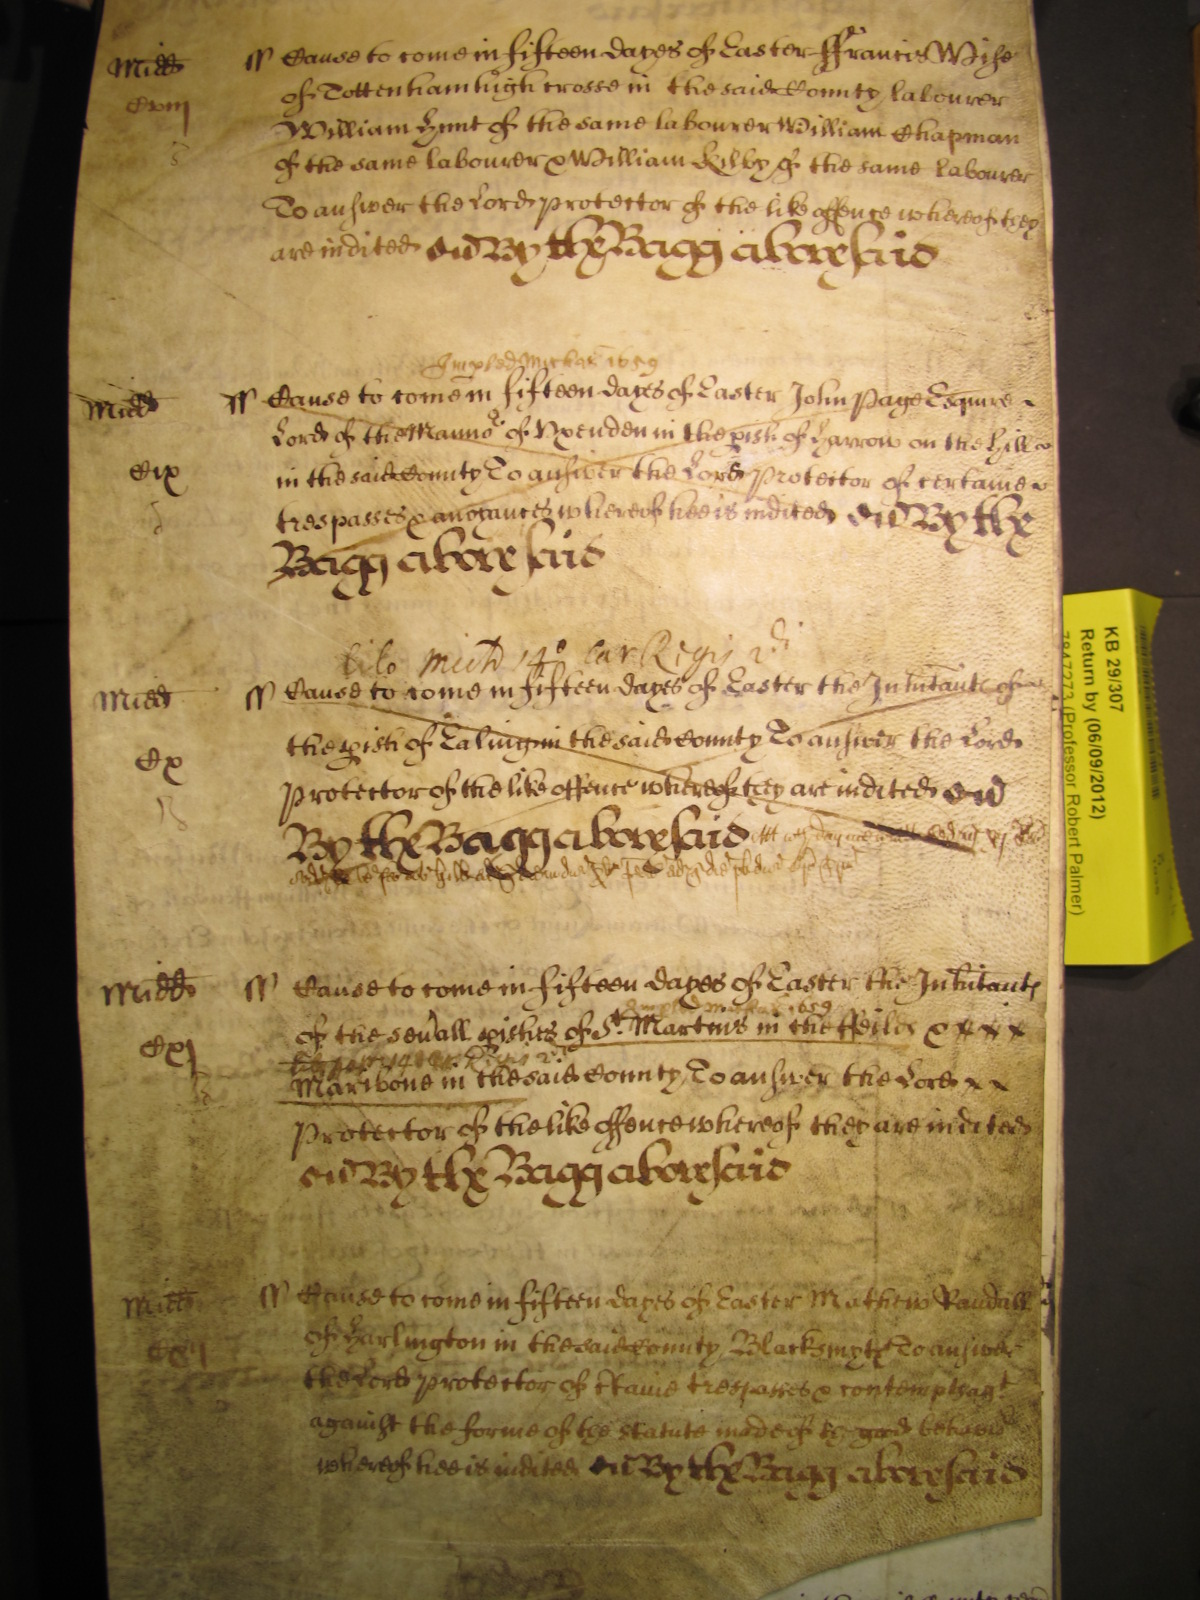 Midd ss Cause to come in fifteen dayes of Easter ffrancis Wise
Cviij of Tottenham high crosse in the said County labourer
William Hunt of the same labourer William Chapman
of the same labourer & William Kilby of the same labourer
To answer the Lord Protector of the like offence whereof they
are indited By the Bagg aforesaid
1659
Midd ss Cause to come in fifteen dayes of Easter John Page Esquire
Lord of the Manno^r of Uxenden in the pish of Harrow on the hill
Cix in the said County To answer the Lord Protector of certaine
trespasses & anoyances whereof hee is indited By the
Bagg aforesaid
Mich 14^o Car Regis 2^di
Midd ss Cause to come in fifteen dayes of Easter the Inhitants of
Cx the pish of Ealing in the said County To answer the Lord
Protector of the like offence whereof they are indited
By the Bagg aforesaid
Midd ss Cause to come in fifteen dayes of Easter the Inhitants
1659
of the sevall pishes of S^t Martins in the ffeilds &
Cxj
Maribone in the said County To answer the Lord
Protector of the like offence whereof they are indited
By the Bagg aforesaid
Midd ss Cause to come in fifteen dayes of Easter Mathew Randall
Cxij of Harlington in the said County Blacksmyth To answer
the Lord Protector of ctaine trespasses & contempts
against the forme of the statute made of the good
whereof hee is indited By the Bagg aforesaid
KB 29/307
Return by (06/09/2012)
7847273 (Professor Robert Palmer)